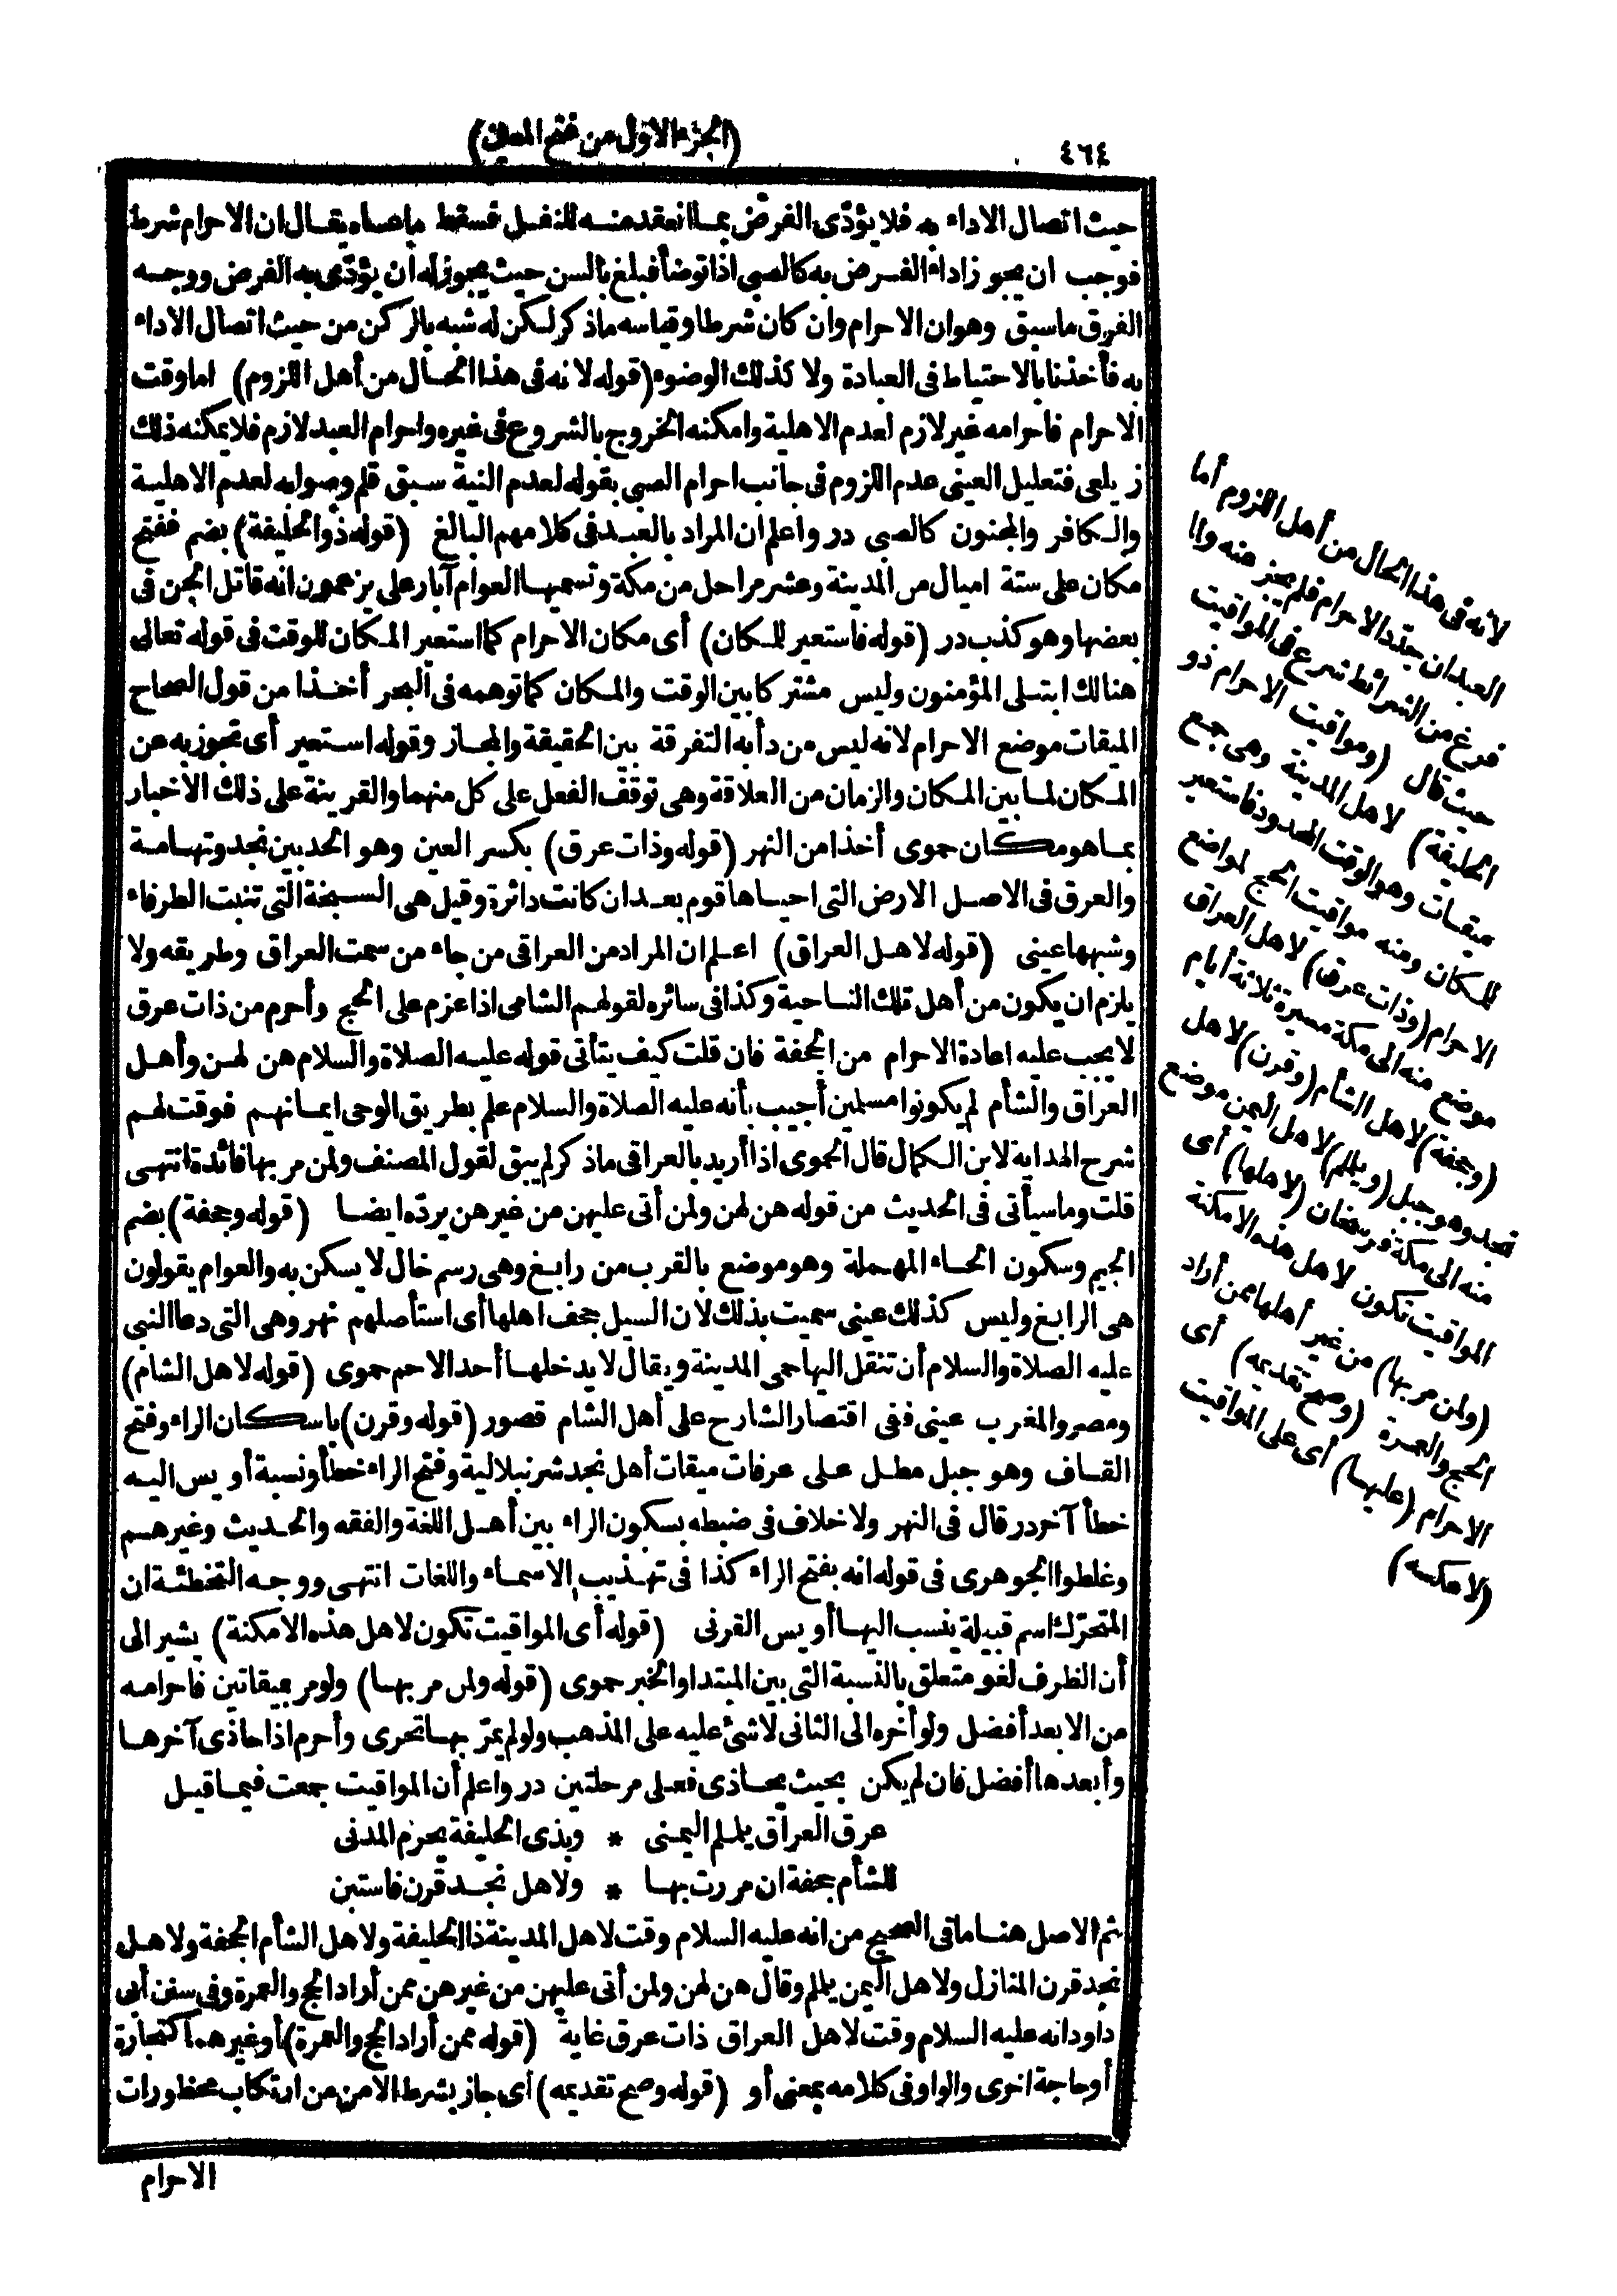 ٤٦٤
(الجزء الاوّل من فتح المعين)
حيث اتصال الاداء به فلا يؤدّى الفرض بما انعقد منه للنفل فسقط ما عساه يقال ان الاحرام شرط
فوجب ان يجوز اداء الفرض به كالصبى اذا توضأ فبلغ بالسن حيث يجوز له أن يؤدّى به الفرض ووجه
الفرق ما سبق وهو ان الاحرام وان كان شرطا وقياسه ماذكر لكن له شبه بالركن من حيث اتصال الاداء
به فأخذنا بالاحتياط فى العبادة ولا كذلك الوضوء (قوله لانه فى هذا الحال من أهل اللزوم) اما وقت
الاحرام فاحرامه غير لازم لعدم الاهلية وامكنه الخروج بالشروع فى غيره واحرام العبد لازم فلا يمكنه ذلك
زيلعى فتعليل العينى عدم اللزوم فى جانب احرام الصبى بقوله لعدم النية سبق قلم وصوابه لعدم الاهلية
والكافر والمجنون كالصبى در واعلم ان المراد بالعبد فى كلامهم البالغ (قوله ذو الحليفة) بضم ففتح
مكان على ستة اميال من المدينة وعشر مراحل من مكة وتسميها العوام آبار على يزعمون انه قاتل الجن فى
بعضها وهو كذب در (قوله فاستعير للمكان) أى مكان الاحرام كما استعير المكان للوقت فى قوله تعالى
هنالك ابتلى المؤمنون وليس مشتركا بين الوقت والمكان كما توهمه فى البحر أخذا من قول الصحاح
الميقات موضع الاحرام لانه ليس من دأبه التفرقة بين الحقيقة والمجاز وقوله استعير أى تجوز به عن
المكان لما بين المكان والزمان من العلاقة وهى توقف الفعل على كل منهما والقرينة على ذلك الاخبار
بما هو مكان حموى أخذا من النهر (قوله وذات عرق) بكسر العين وهو الحد بين نجد وتهامة
والعرق فى الاصل الارض التى احياها قوم بعد ان كانت داثرة وقيل هى السبخة التى تنبت الطرفاء
وشبهها عينى (قوله لاهل العراق) اعلم ان المراد من العراقى من جاء من سمت العراق وطريقه ولا
يلزم ان يكون من أهل تلك الناحية وكذا فى سائره لقولهم الشامى اذا عزم على الحج وأحرم من ذات عرق
لا يجب عليه اعادة الاحرام من الجحفة فان قلت كيف يتأتى قوله عليه الصلاة والسلام هن لهن وأهل
العراق والشأم لم يكونوا مسلمين أجيب بأنه عليه الصلاة والسلام علم بطريق الوحى ايمانهم فوقت لهم
شرح الهداية لابن الكمال قال الحموى اذا أريد بالعراقى ماذكر لم يبق لقول المصنف ولمن مر بها فائدة انتهى
قلت وما سيأتى فى الحديث من قوله هن لهن ولمن أتى عليهن من غيرهن يردّه ايضا (قوله وجحفة) بضم
الجيم وسكون الحاء المهملة وهو موضع بالقرب من رابغ وهى رسم خال لا يسكن به والعوام يقولون
هى الرابغ وليس كذلك عينى سميت بذلك لأن السيل جحف اهلها أى استأصلهم نهر وهى التى دعا النبى
عليه الصلاة والسلام أن تنقل اليها حمى المدينة ويقال لا يدخلها أحد الا حم حموى (قوله لاهل الشام)
ومصر والمغرب عينى ففى اقتصار الشارح على أهل الشام قصور (قوله وقرن) باسكان الراء وفتح
القاف وهو جبل مطل على عرفات ميقات أهل نجد شرنبلالية وفتح الراء خطأ ونسبة أويس اليه
خطأ آخر در قال فى النهر ولا خلاف فى ضبطه بسكون الراء بين أهل اللغة والفقه والحديث وغيرهم
وغلطوا الجوهرى فى قوله انه بفتح الراء كذا فى تهذيب الاسماء واللغات انتهى ووجه التخطئة ان
المتحرّك اسم قبيلة ينسب اليها أويس القرنى (قوله أى المواقيت تكون لاهل هذه الامكنة) يشير الى
أن الظرف لغو متعلق بالنسبة التى بين المبتدا والخبر حموى (قوله ولمن مر بها) ولو مر بميقاتين فاحرامه
من الابعد أفضل ولو أخره الى الثانى لا شئ عليه على المذهب ولو لم يمرّ بها تحرى وأحرم اذا حاذى آخرها
وأبعدها أفضل فان لم يكن بحيث يحاذى فعلى مرحلتين در واعلم أن المواقيت جمعت فيما قيل
عرق العراق يلملم اليمنى * وبذى الحليفة يحرم المدنى
للشأم جحفة ان مررت بها * ولاهل نجد قرن فاستبن
ثم الاصل هنا ما فى الصحيح من انه عليه السلام وقت لاهل المدينة ذا الحليفة ولاهل الشأم الجحفة ولاهل
نجد قرن المنازل ولاهل اليمن يلملم وقال هن لهن ولمن أتى عليهن من غيرهن ممن أراد الحج والعمرة وفى سنن أبى
داود انه عليه السلام وقت لاهل العراق ذات عرق غاية (قوله ممن أراد الحج والعمرة) أو غيرهما كتجارة
أو حاجة اخرى والواو فى كلامه بمعنى أو (قوله وصح تقديمه) أى جاز بشرط الامن من ارتكاب محظورات
الاحرام
لأنه فى هذا الحال من أهل اللزوم أما
العبد ان جدّد الاحرام فلم يجز منه ولما
فرغ من الشرائط شرع فى المواقيت
حيث قال (ومواقيت الاحرام ذو
الحليفة) لاهل المدينة وهى جمع
ميقات وهو الوقت المحدود فاستعير
للمكان ومنه مواقيت الحج لمواضع
الاحرام (وذات عرق) لاهل العراق
موضع منه الى مكة مسيرة ثلاثة أيام
(وجحفة) لاهل الشأم (وقرن) لاهل
نجد وهو جبل (ويلملم) لاهل اليمن موضع
منه الى مكة فرسخان (لاهلها) أى
المواقيت تكون لاهل هذه الامكنة
(ولمن مر بها) من غير أهلها ممن أراد
الحج والعمرة (وصح تقديمه) أى
الاحرام (عليها) أى على المواقيت
(لا عكسه)